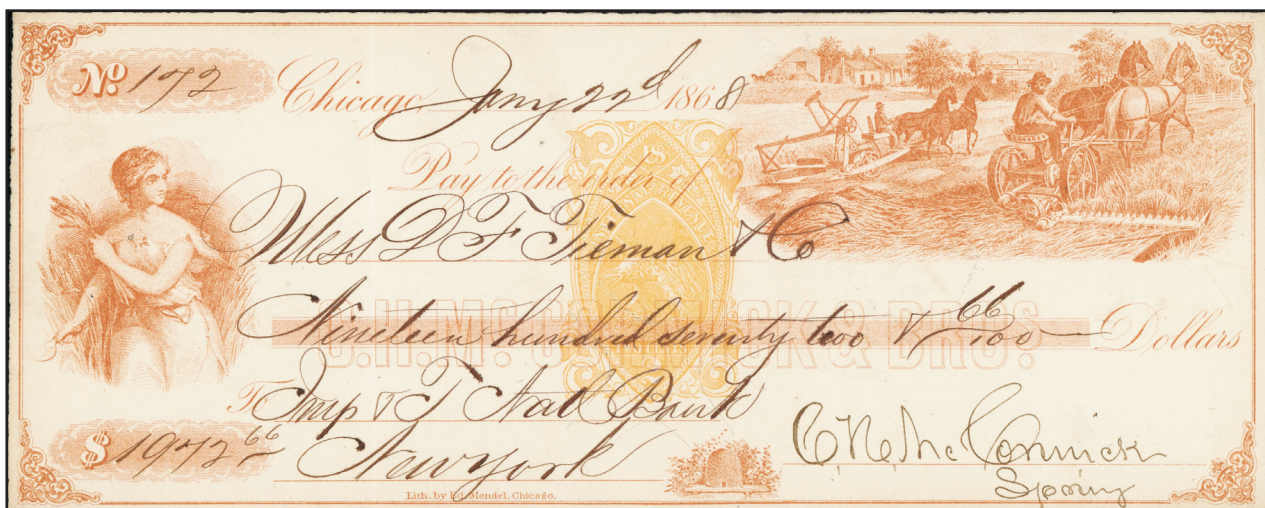 No. 172
Chicago Jany 22d 1868
Pay to the order of
Mess D F Tieman & Co
Nineteen hundred seventy two & 66/100 Dollars
C.H. McCORMICK & BRO.
To Imp & T Nat Bank
$ 1972 66
New York
C.H. McCormick
Lith. by Ed. Mendel, Chicago.